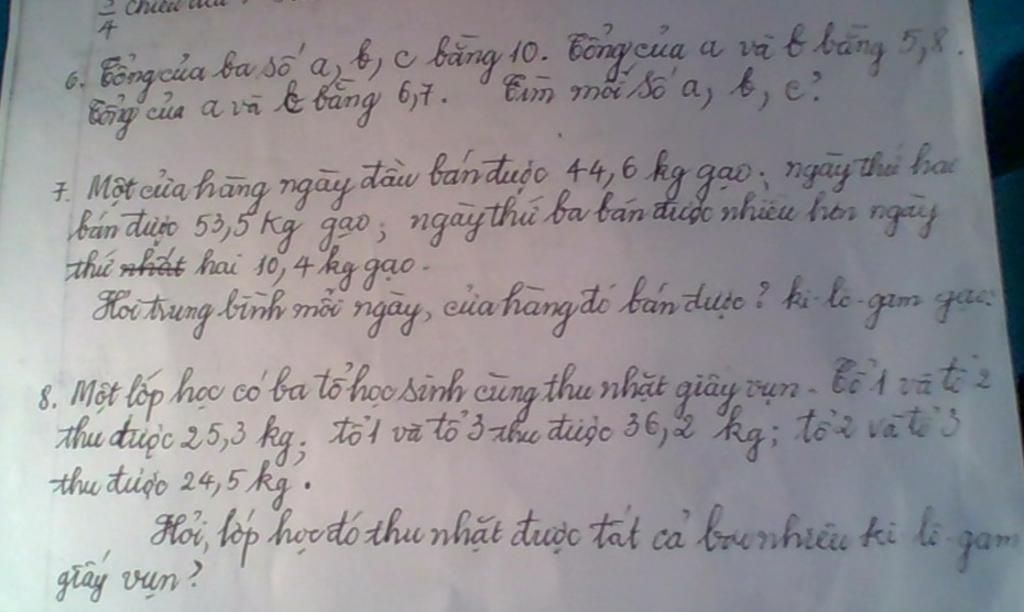 3/4 chiều dài
6. Tổng của ba số a, b, c bằng 10. Tổng của a và b bằng 5,8.
Tổng của a và b bằng 6,7. Tìm mỗi số a, b, c?
7. Một cửa hàng ngày đầu bán được 44,6 kg gạo; ngày thứ hai
bán được 53,5 kg gạo; ngày thứ ba bán được nhiều hơn ngày
thứ nhất hai 10,4 kg gạo.
Hỏi trung bình mỗi ngày, cửa hàng đó bán được? ki-lô-gam gạo?
8. Một lớp học có ba tổ học sinh cùng thu nhặt giấy vụn. Tổ 1 và tổ 2
thu được 25,3 kg; tổ 1 và tổ 3 thu được 36,2 kg; tổ 2 và tổ 3
thu được 24,5 kg.
Hỏi, lớp học đó thu nhặt được tất cả bao nhiêu ki lô-gam
giấy vụn?